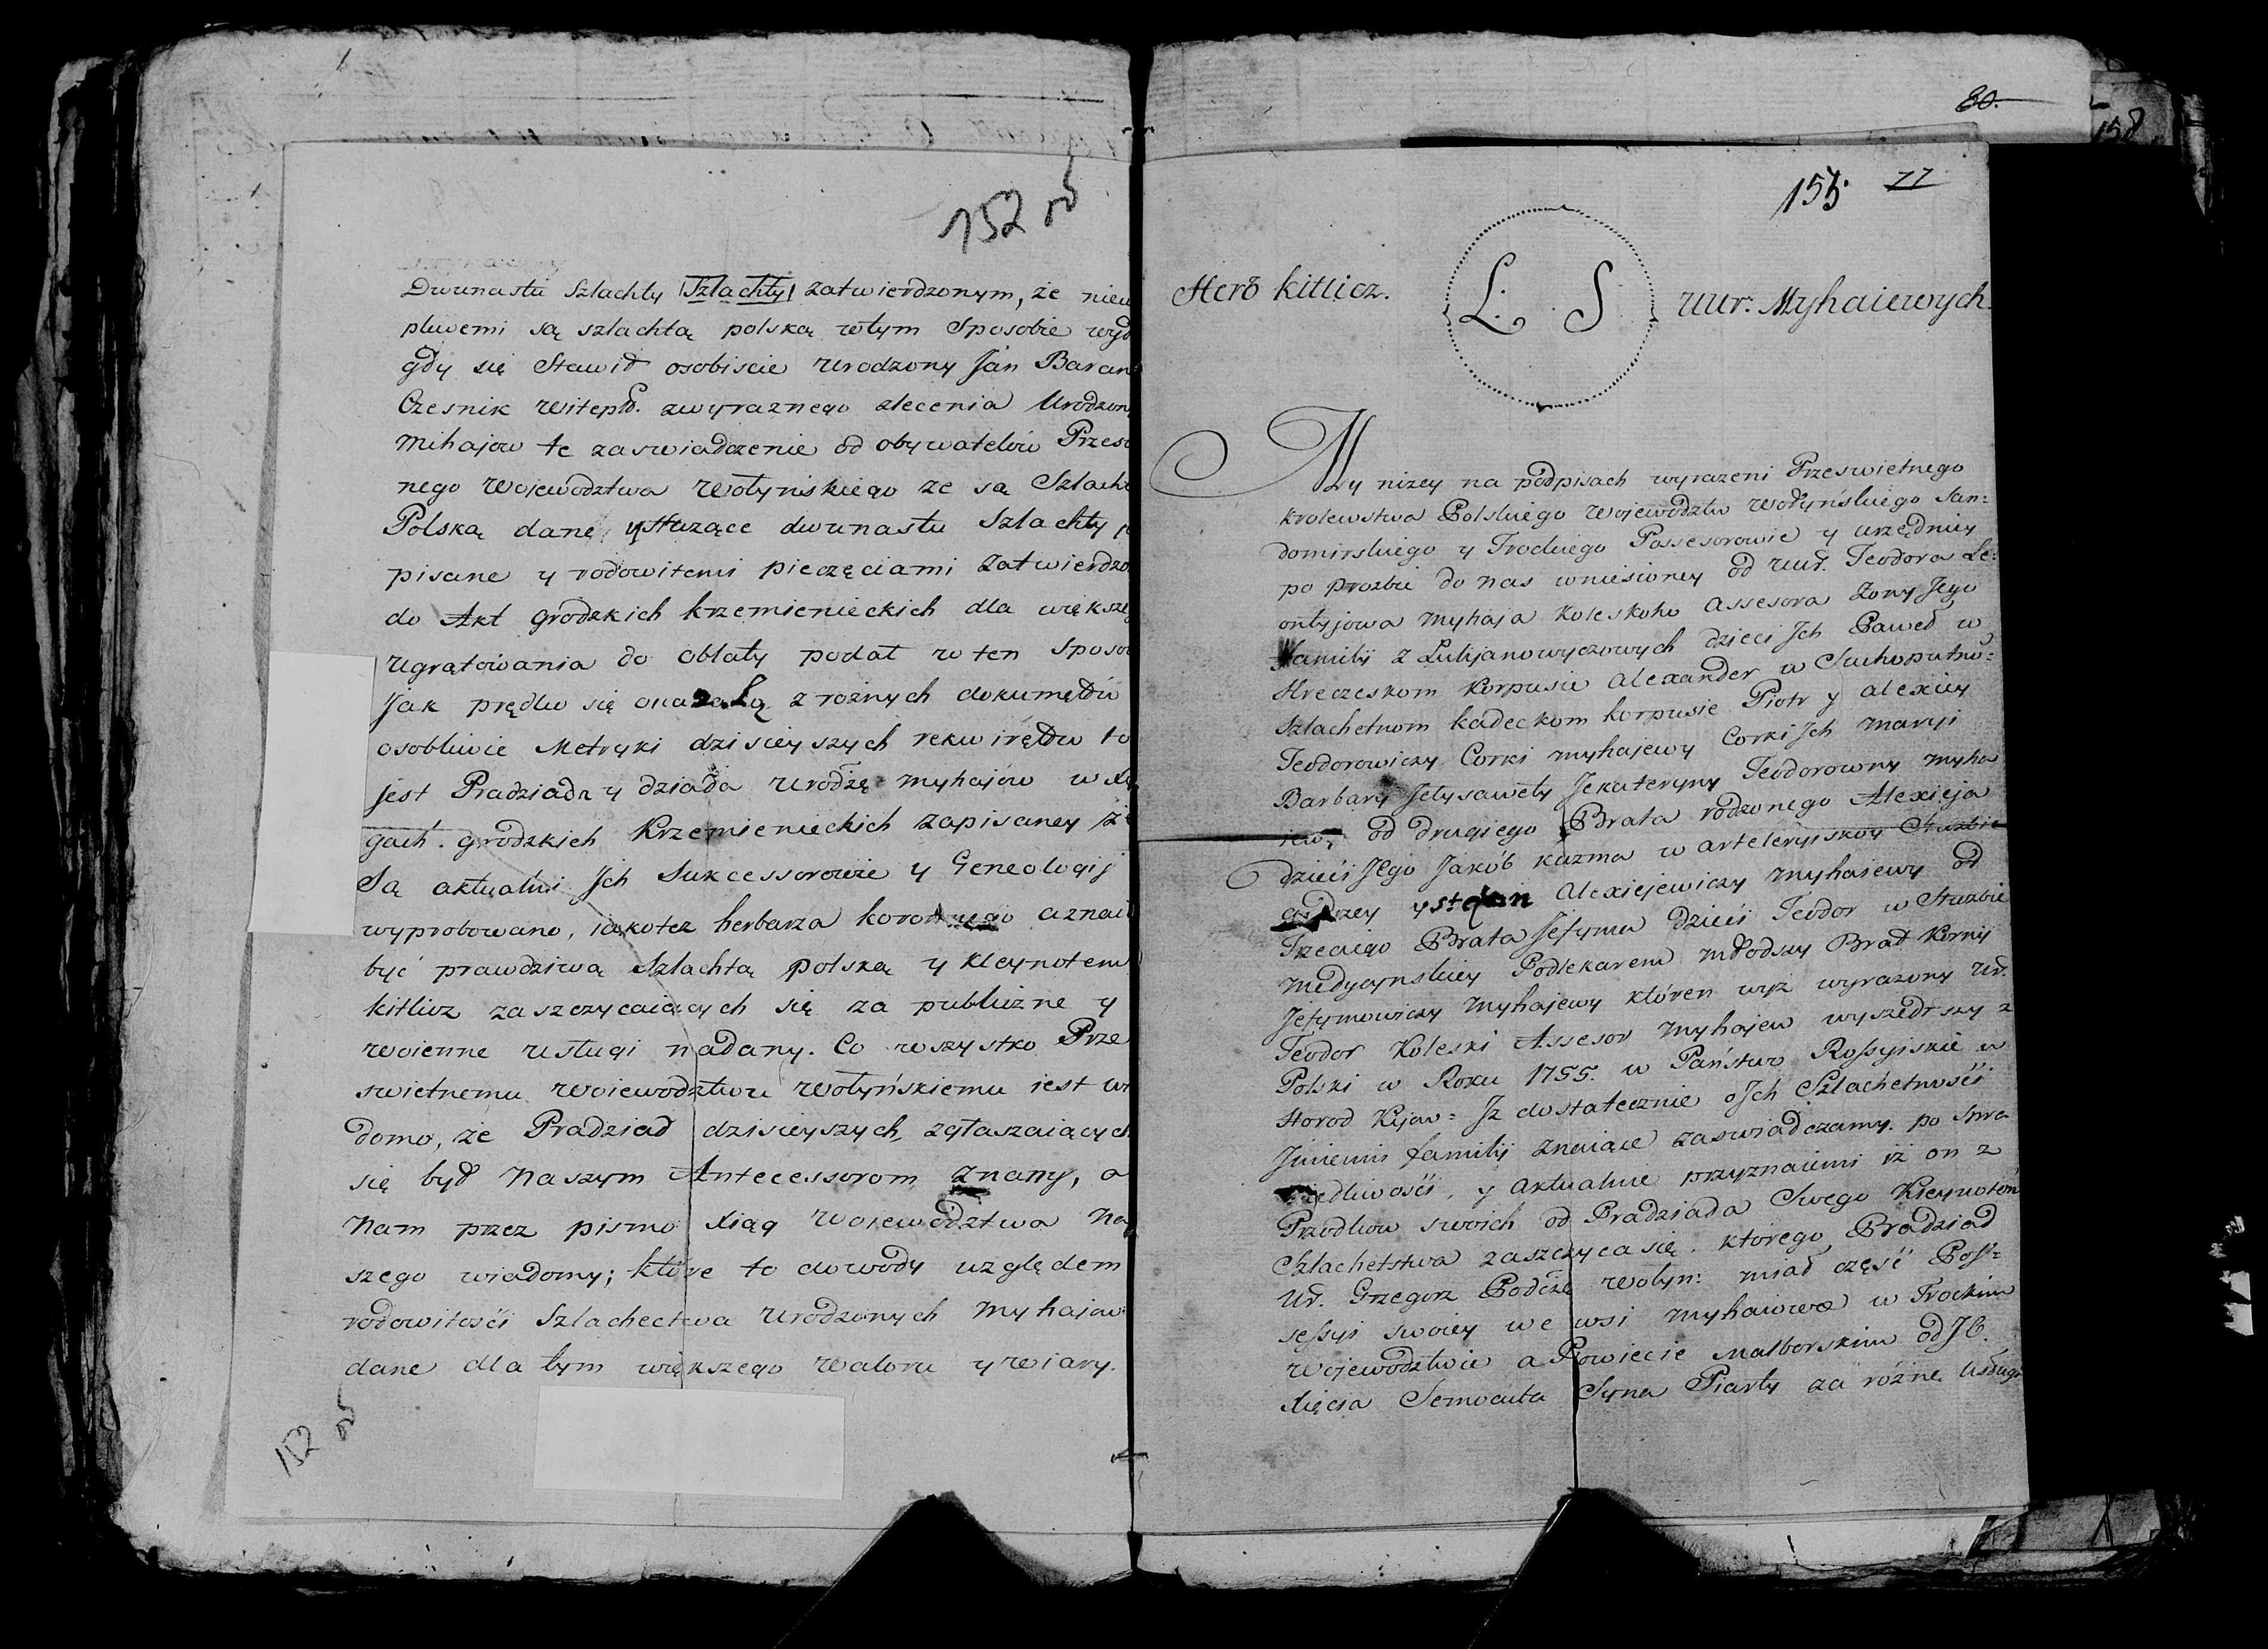 152 об
Dwunastu Szlachty |Szlachty| zatwierdzonym, że niew
pliwemi są szlachtą polską w tym Sposobie wyd
gdy się Stawił osobiscie Urodzony Jan Baran
Czesnik Witeps. zwyraznego zlecenia Urodzon
Mihajow te zaswiadczenie od obywatelów Przes
nego Wojewodztwa Wołyńskiego ze są Szlach
Polską dane, y służące dwunastu Szlachty p
pisane y rodowitemi pieczęciami zatwierdzo
do Akt grodzkich krzemienieckich dla większe
Ugrątowania do oblaty podał w ten Sposo
Jak prędko się z roznych dokumętów
osobliwie Metryki dzisieyszych rekwirętów to
jest Pradziada y dziada Urodzę Myhajow w Xię
gach grodzkich Krzemienieckich zapisaney że
Są aktualni Jch Sukcessorowie y Geneologij
wyprobowano, iakotez herbarza koronnego aznai
być prawdziwą Szlachtą polską y kleynotem
kitlicz zaszczycaiących się za publiczne y
woienne usługi nadany. Co wszystko Prze
swietnemu Woiewodztwu Wołyńskiemu iest wi
domo, że Pradziad dzisieyszych, zgłaszaiących
się był Naszym Antecessorom znany, a
Nam przez pismo Xiąg Woiewodztwa Na
szego wiadomy; które to dowody względem
rodowitości Szlachectwa Urodzonych Myhajow
dane dla tym większego waloru y wiary.
152 об
80.
158
155. 77
Herb kitlicz. L. S Uur: Myhaiewych.
My nizey na podpisach wyrazeni Przeswietnego
krolewstwa Polskiego Wojewodztw Wołyńskiego San=
domirskiego y Trockiego Possesorowie y urzędnicy
po prozbie do nas wniesioney od Uur. Teodora Le=
ontyjowa Myhaja Koleskoho Assesora zony Jego
Familij z Lukijanowyczowych dzieci Jch Paweł w
Hreczeskom Korpusie Alexander w Suchoputno=
Szlachetnom kadeckom korpusie Piotr y Alexiey
Teodorowiczy Corki Myhajewy Corki Jch Maryi
Barbary Jelysawety Jekateryny Teodorowny Myha
iew, od drugiego Brata rodzonego Alexieja
dzieci Jego Jakób Kuzma w arteleryiskoy Służbie
Andrzey y Stefan Alexiejewiczy Myhajewy od
Trzeciego Brata Jefyma dzieci Teodor w Służbie
Medycynskiey Podlekarem młodszy Brat Korniy
Jefymowiczy Myhajewy któren wyz wyrazony Ur.
Teodor Koleski Assesor Myhajew wyszedłszy z
Polski w Roku 1755. w Państwo Rossyiskie w
Horod Kijow= Jz dostatecznie o Jch Szlachetności
Jmieniu familij znaiące zaswiadczamy. po Spra
wiedliwości, y aktualnie przyznaiemi iż on z
Przodkow swoich od Pradziada Swego Kleynotem
Szlachetstwa zaszczyca się. ktorego Pradziad
Ur. Grzegorz Podcze Wołyn: miał część Pos=
sessyi swoiey we wsi Myhaiowce w Trockim
Wojewodztwie a Powiecie Malborskim od JO.
Xięcia Semowita Syna Piasty za różne usługi